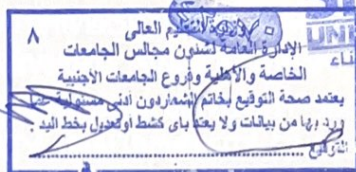 وزارة التعليم العالى
٨
الإدارة العامة لشئون مجالس الجامعات
الخاصة والأهلية وفروع الجامعات الأجنبية
يعتمد صحة التوقيع بخاتم الشعار دون أدنى مسئولية عما
ورد بها من بيانات ولا يعتد باى كشط أو تعديل بخط اليد :
التوقيع
UNI